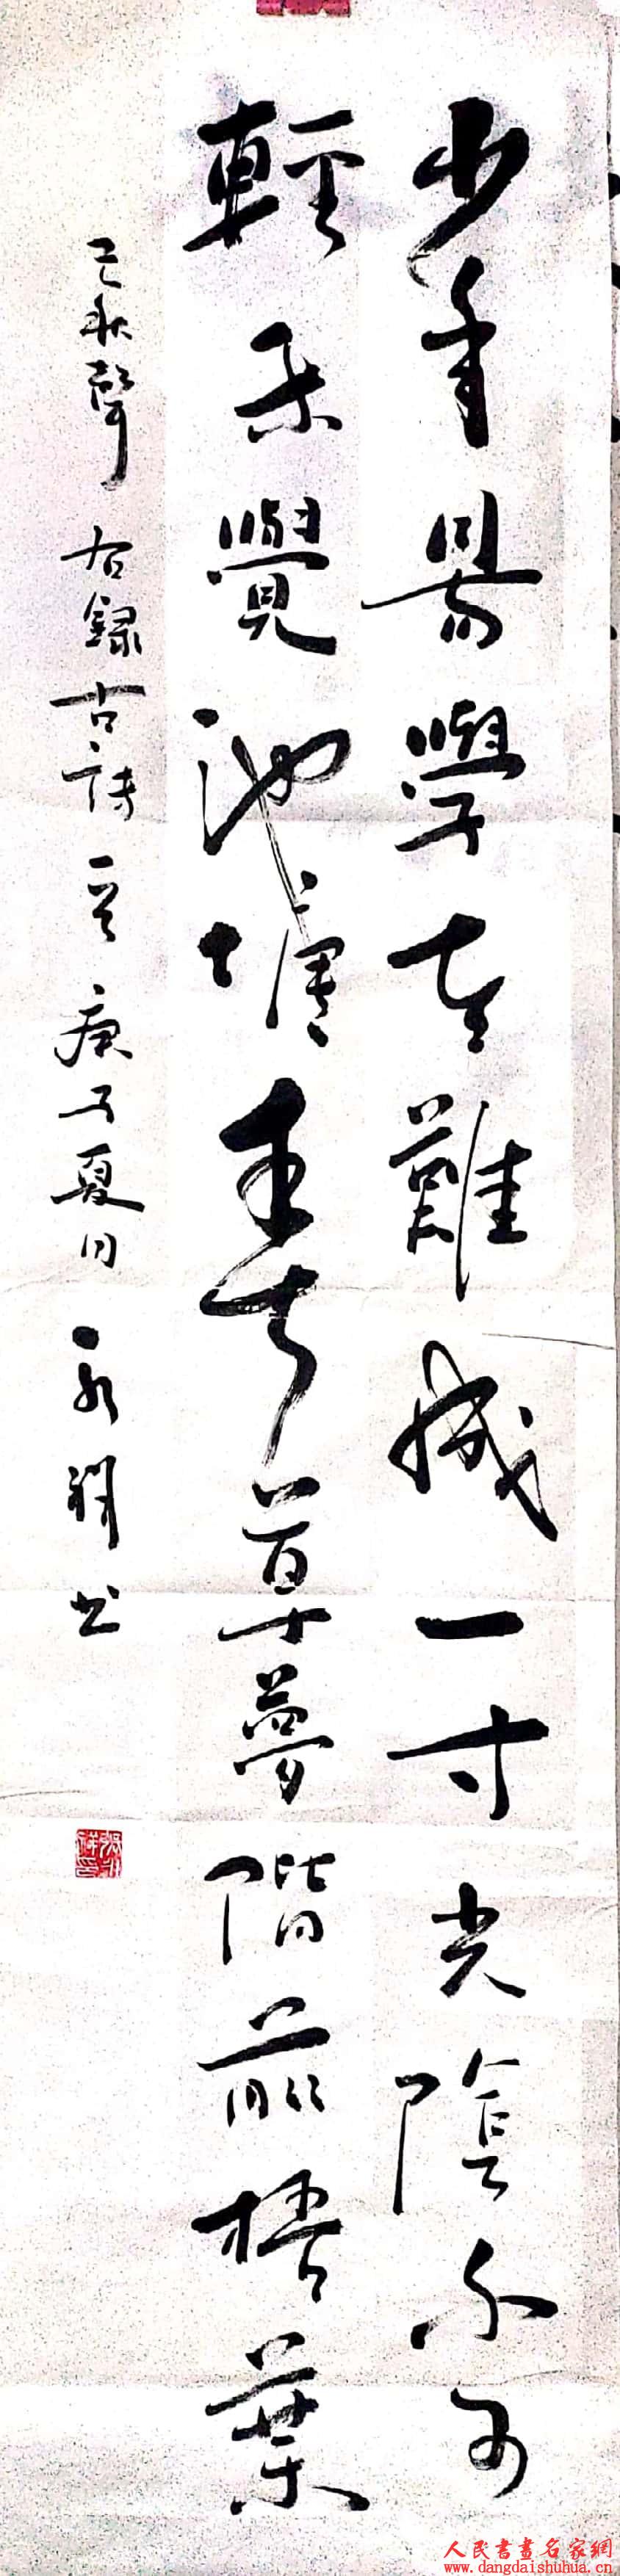 少年易學老難成一寸光陰不可
輕未覺池塘春草夢階前梧葉
已秋聲 右錄古詩一首 庚子夏日 永祥書
人民書畫名家網
www.dangdaishuhua.cn